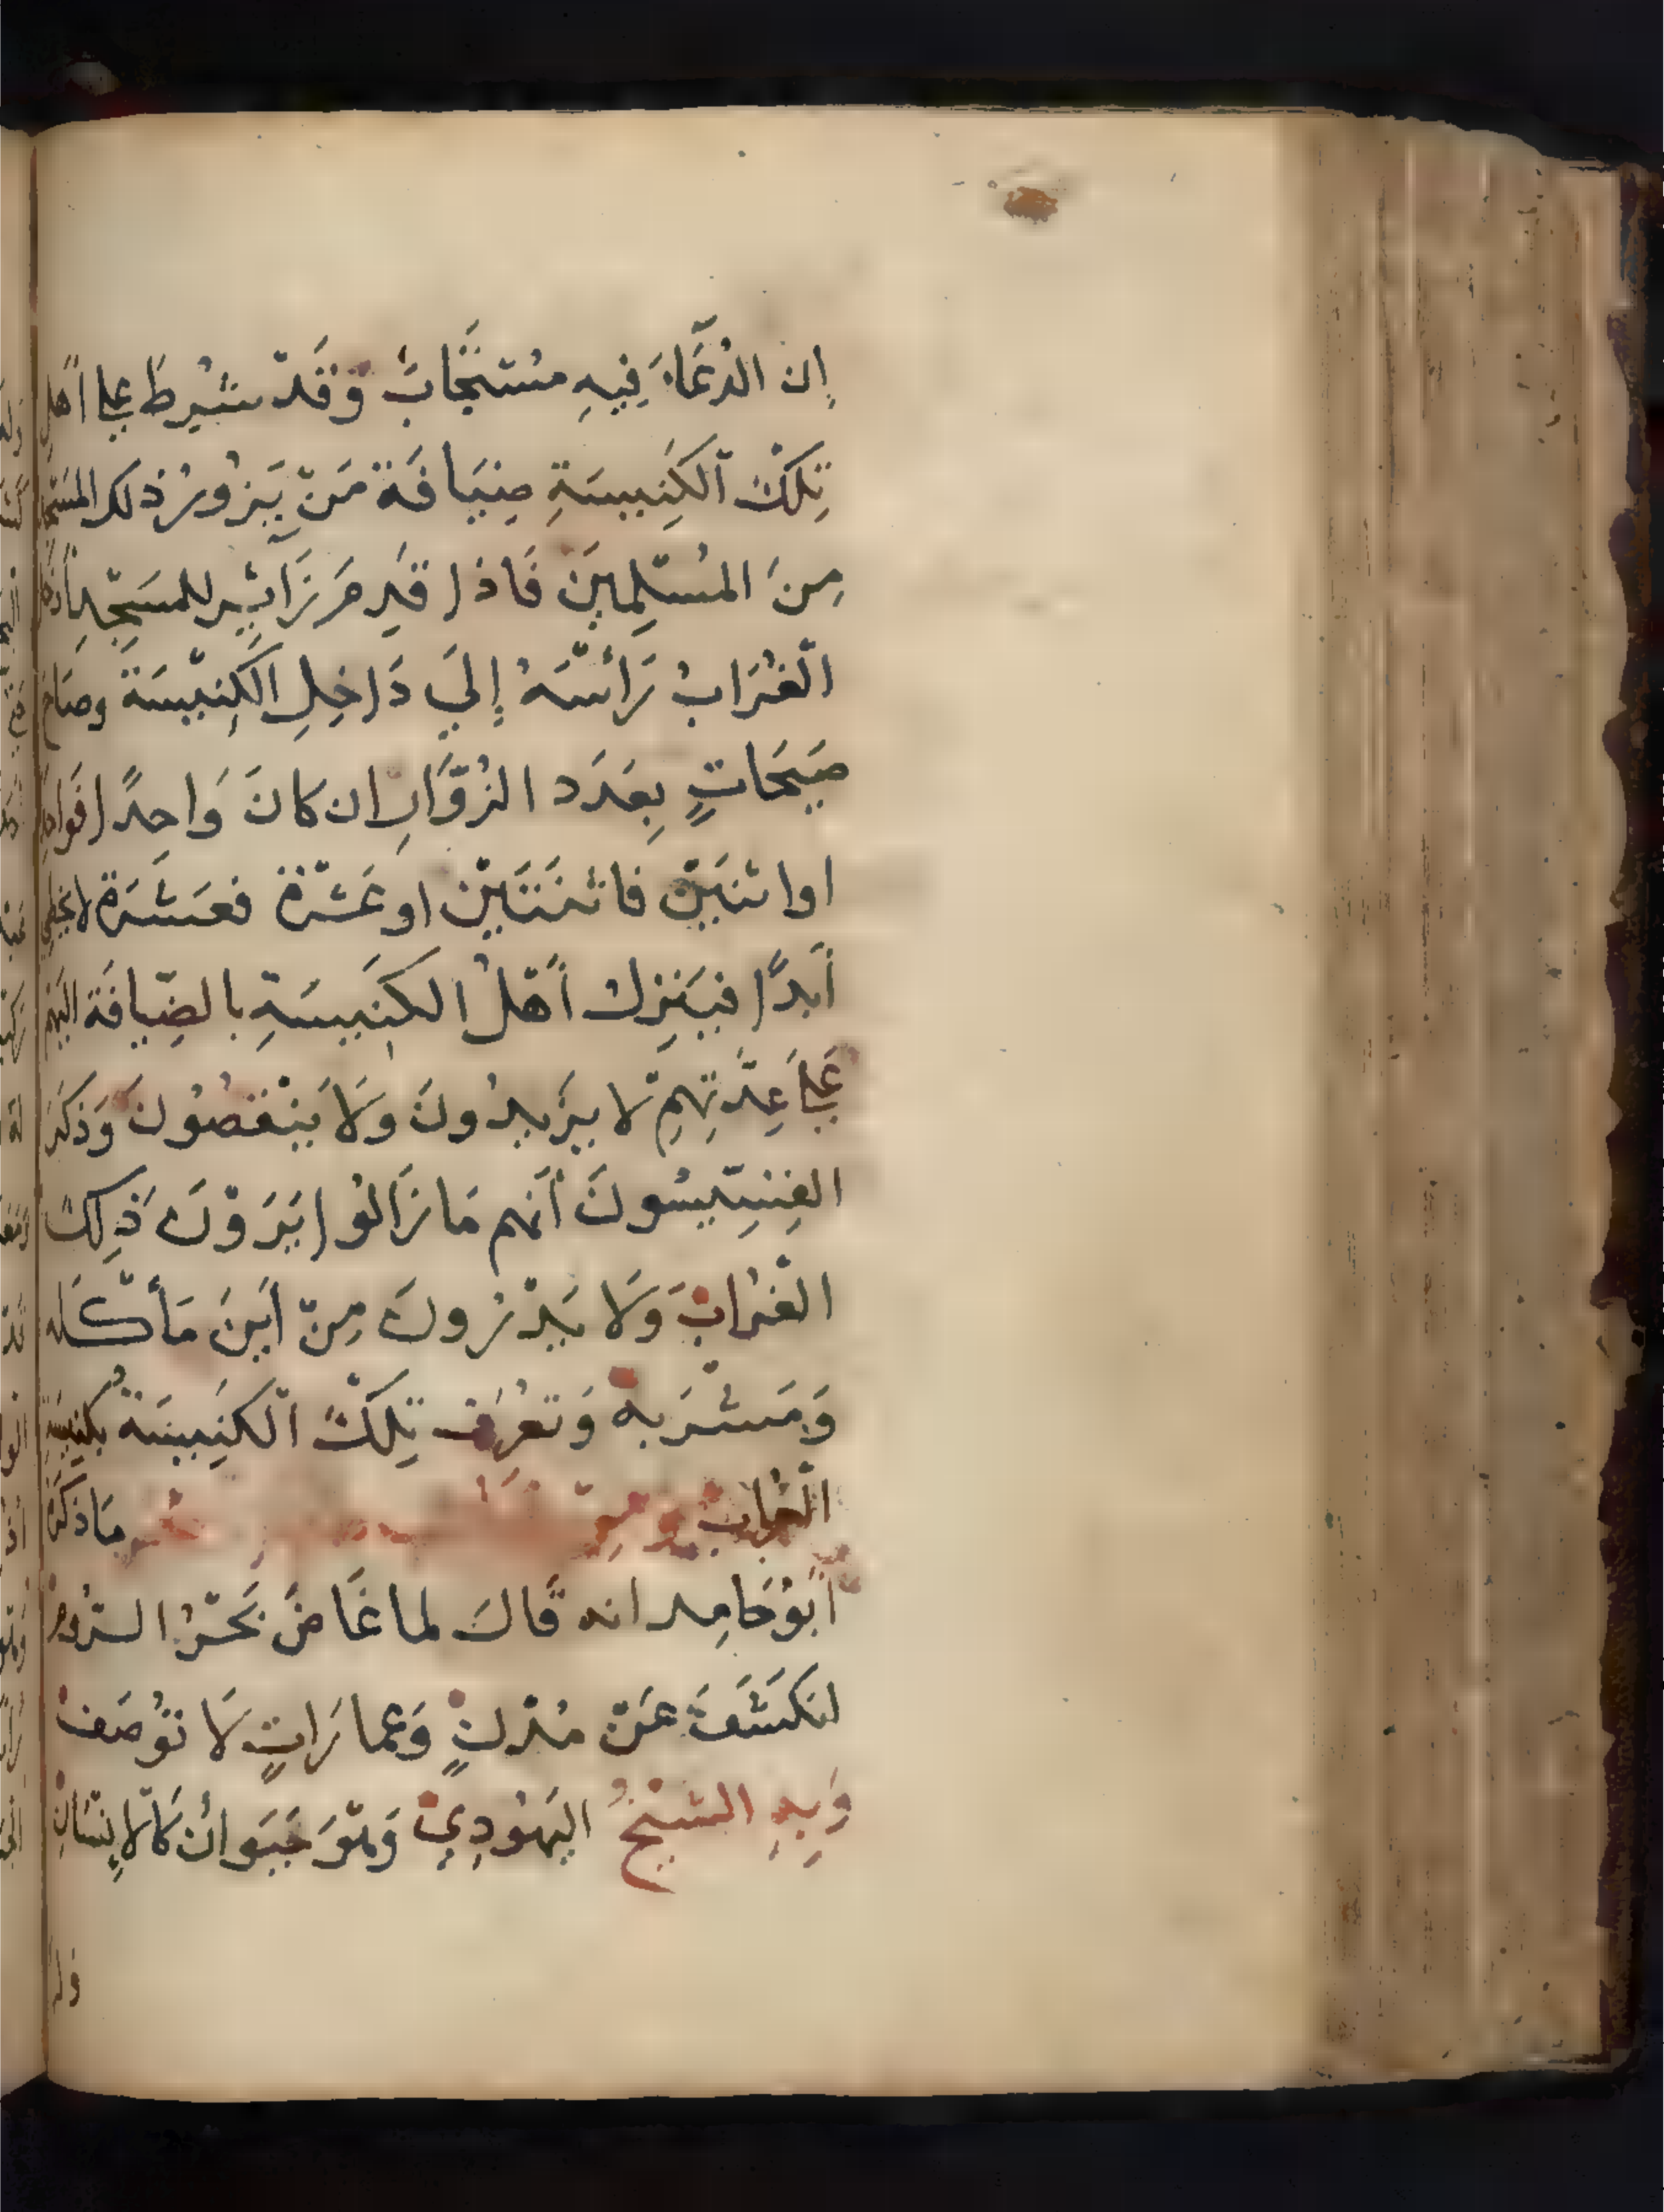 إن الدُعَّاءَ فِيهِ مُسْتَجَابٌ وَقَدْ شُرِطَ علي أهل
تِلكَ الكَنِيسَةِ ضِيَافَة مَنْ يَزورُ ذلك المسجد
مِنَ المُسْلِمِينَ فَاذا قَدِمَ زَائِر للمَسْجِد
الغُرَابُ رَأسَهُ إِلَي دَاخِلِ الكِنِيسَة وصَاحَ
صَيحَاتٍ بِعَدَد الزُوَّارِ ان كانَ وَاحِدًا فَواحد
او اثنَيْن فاثنَتَيْن او عَشْرة فعَشَرَة لا يخطي
أَبَدًا فيَنزِل أَهْلُ الكَنِيسَةِ بالضِيافَة اليَهم
عَلَي عِدَّتِهِمْ لا يزَيدُونَ وَلَا يَنْقصُونَ وَذَكَرَ
القِسِّيسُونَ أنهم مَا زَالُوا يَرَوْنَ ذَلِكَ
الغُرَابَ وَلَا يَدْرُونَ مِنْ أَينَ مَأكَله
وَمَشْرَبه وَتعُرَف تِلكَ الكَنِيسَة بكنِيسَة
الغُراب مَا ذكَرَ
أبُوحَامِد انه قَالَ لما غَاضَ بَحْرُ الرُوم
انكَشَفَ عَنْ مُدُنٍ وَعمارَاتٍ لَا تُوصَفْ
وَبِهِ الشيْخُ اليَهُودِي وَهُوَ حَيَوان كَالإِنسَانِ
وله